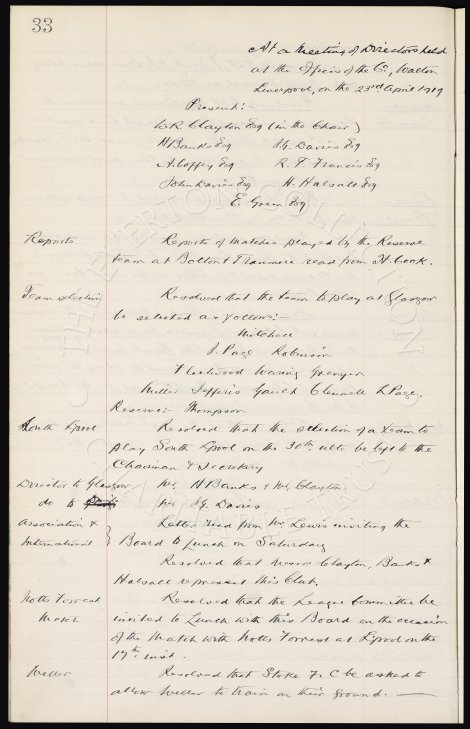 33
At a Meeting of Directors held
at the Offices of the Co, Walton
Liverpool, on the 23rd April 1919
Present:-
W.R. Clayton Esq (in the Chair)
H Banks Esq J.G. Davies Esq
A. Coffey Esq R. F. Francis Esq
John Davies Esq H. Halsall Esq
E. Green Esq
Reports Reports of matches played by the Reserve
team at Bolton & Tranmere read from H Cook.
Team selection Resolved that the team to play at Glasgow
be selected as follows:-
Mitchell
J. Page Robinson
Fleetwood Waring Grenyer
Miller Jefferis Gault Clennell L Page.
Reserve:- Thompson
South Lpool Resolved that the selection of a team to
play South Lpool on the 30th be left to the
Chairman & Secretary
Director to Glasgow Mr H Banks & Mr Clayton.
do to Mr J.G. Davies
Association & Letter read from Mr Lewis inviting the
International } Board to Lunch on Saturday
Resolved that Clayton, Banks &
Halsall represent this Club,
Notts Forrest Resolved that the League Committee be
Match invited to Lunch with this Board on the occasion
of the Match with Notts Forrest at Lpool on the
17th inst.
Weller Resolved that Stoke F.C be asked to
allow Weller to train on their ground.
THE EVERTON COLLECTION